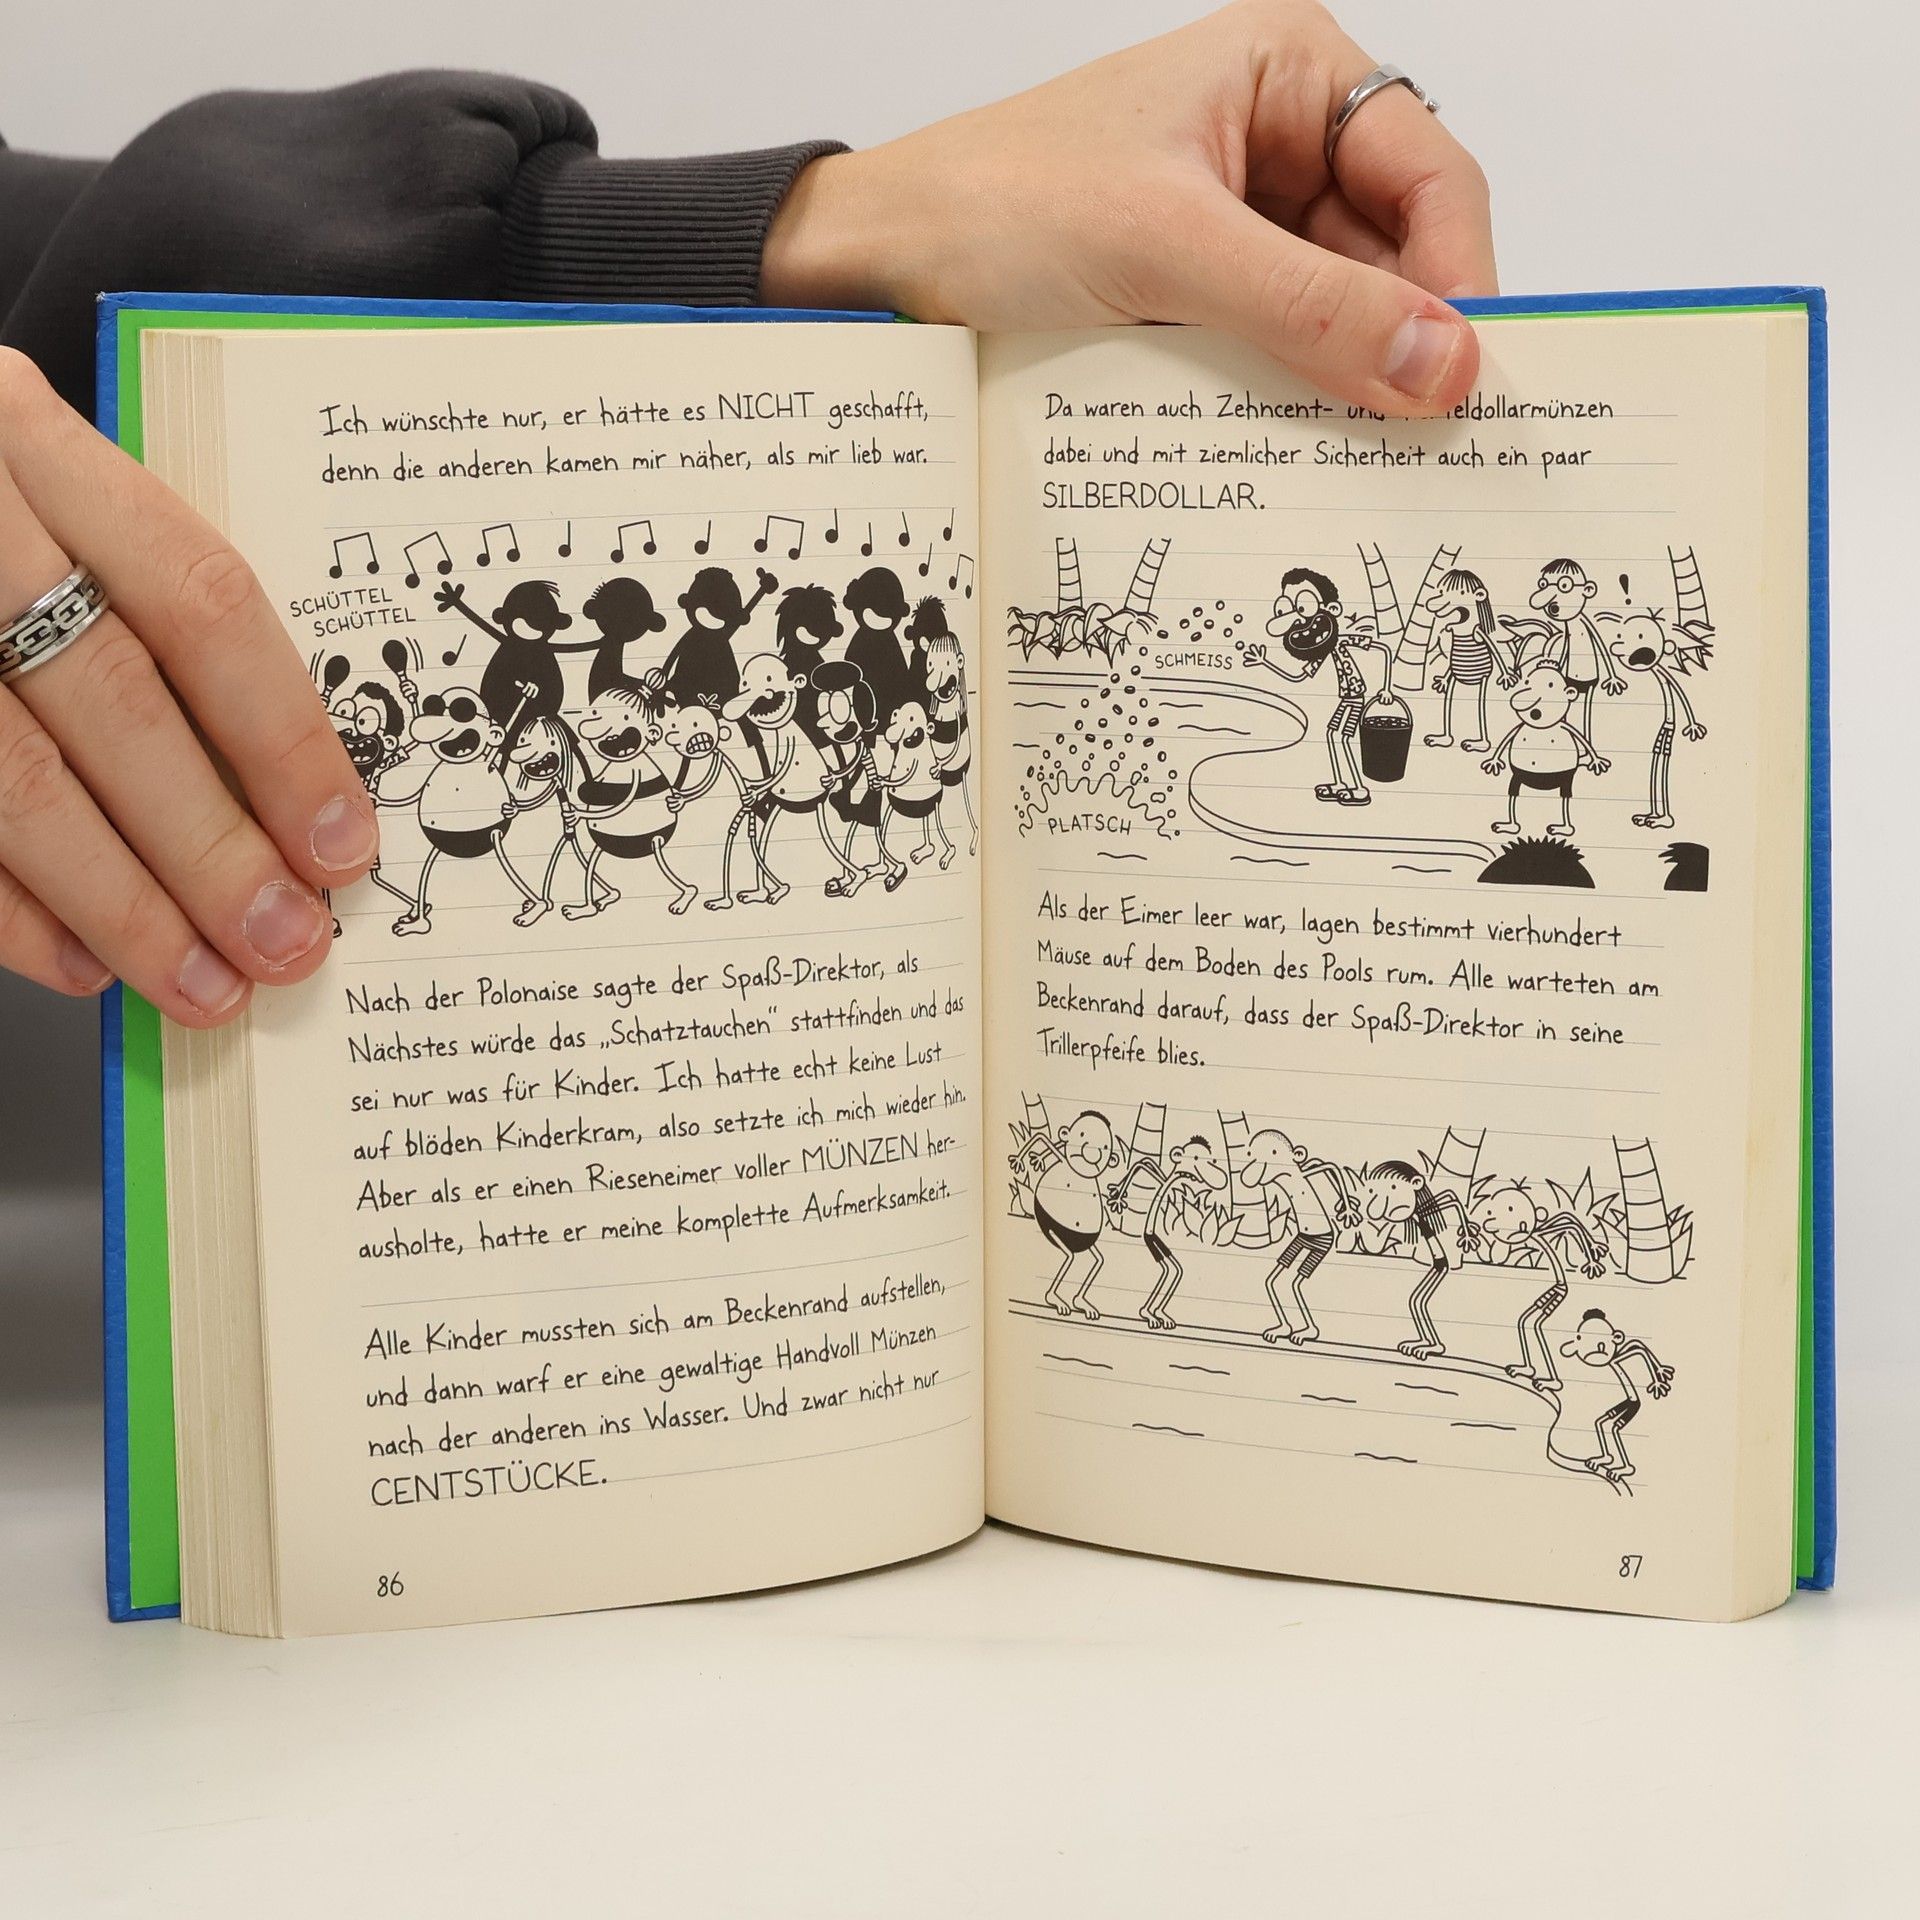 Ich wünschte nur, er hätte es NICHT geschafft,
denn die anderen kamen mir näher, als mir lieb war.
SCHÜTTEL
SCHÜTTEL
Nach der Polonaise sagte der Spaß-Direktor, als
Nächstes würde das „Schatztauchen“ stattfinden und das
sei nur was für Kinder. Ich hatte echt keine Lust
auf blöden Kinderkram, also setzte ich mich wieder hin.
Aber als er einen Rieseneimer voller MÜNZEN her-
ausholte, hatte er meine komplette Aufmerksamkeit.
Alle Kinder mussten sich am Beckenrand aufstellen,
und dann warf er eine gewaltige Handvoll Münzen
nach der anderen ins Wasser. Und zwar nicht nur
CENTSTÜCKE.
86
Da waren auch Zehncent-
dabei und mit ziemlicher Sicherheit auch ein paar
SILBERDOLLAR.
!
SCHMEISS
PLATSCH
Als der Eimer leer war, lagen bestimmt vierhundert
Mäuse auf dem Boden des Pools rum. Alle warteten am
Beckenrand darauf, dass der Spaß-Direktor in seine
Trillerpfeife blies.
87